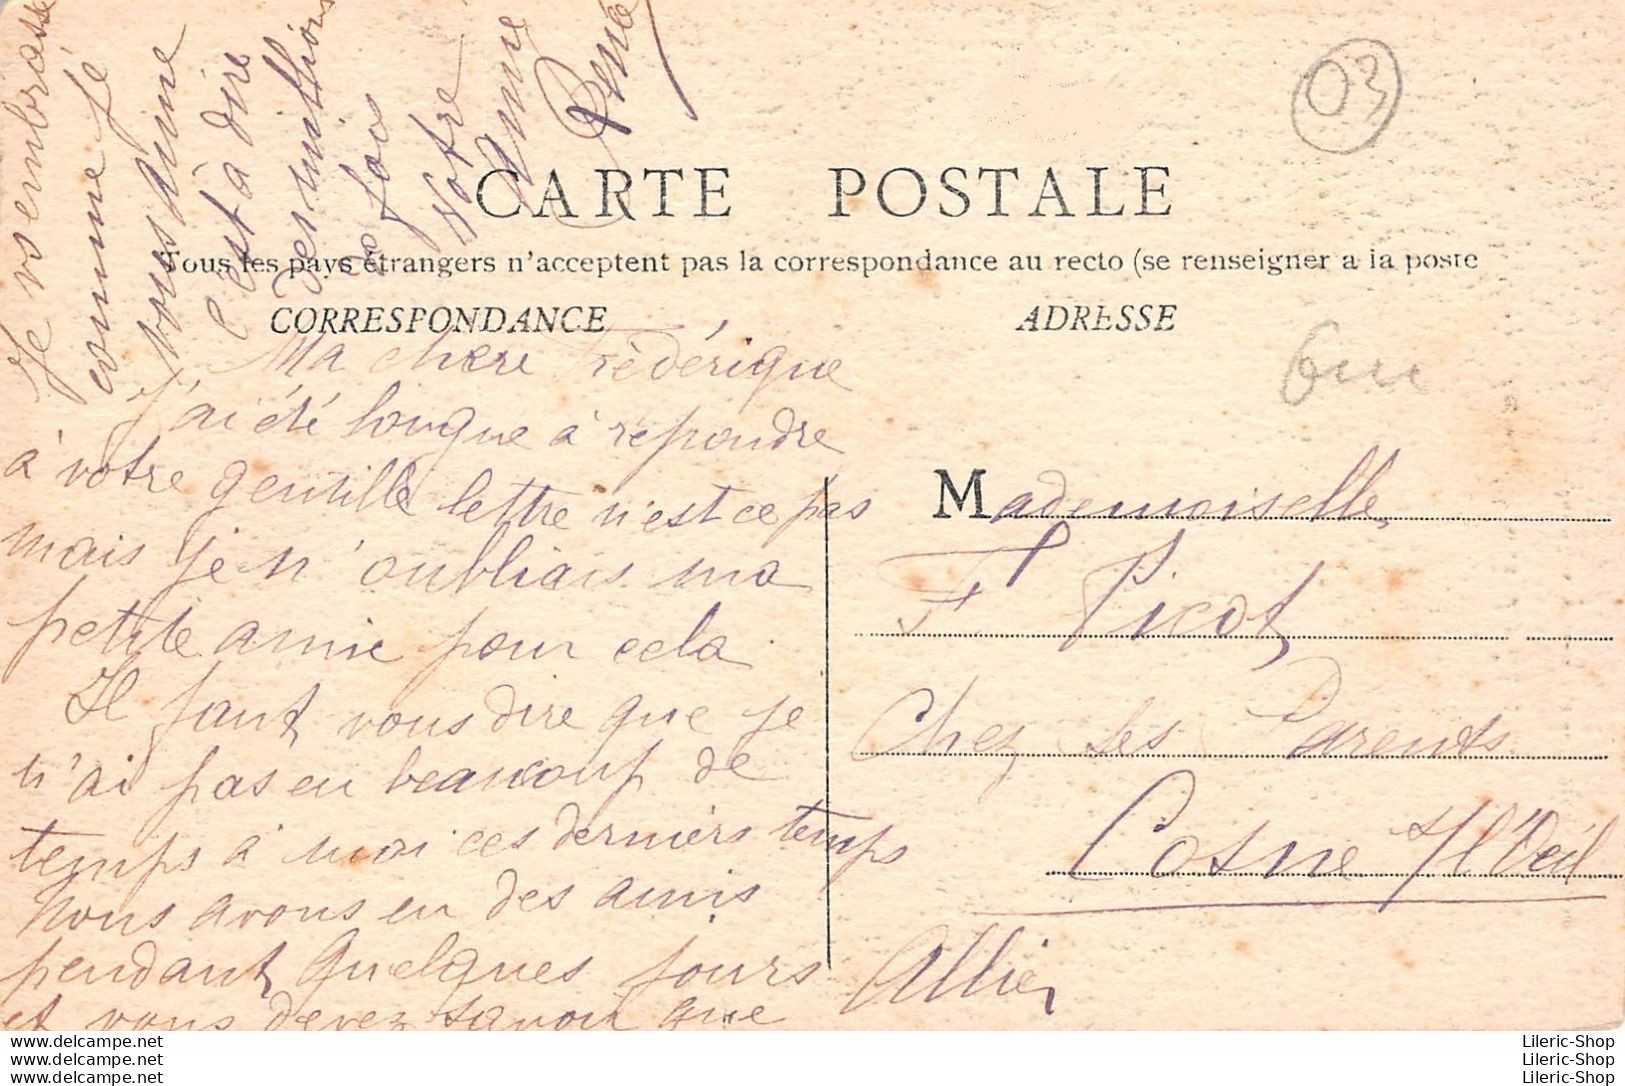 Je vs embrasse
comme je
vous aime
c'est à dire
des millions
de fois
Votre
amie
03
CARTE POSTALE
Tous les pays étrangers n'acceptent pas la correspondance au recto (se renseigner a la poste
CORRESPONDANCE
ADRESSE
Ma chère Frédérique
J'ai été longue à répondre
à votre gentille lettre n'est ce pas
mais je n'oubliais ma
petite amie pour cela.
Il faut vous dire que je
n'ai pas eu beaucoup de
temps à moi ces derniers temps
Nous avons eu des amis
pendant quelques jours
et vous devez savoir que
Mademoiselle
F Picot
Chez ses Parents
Cosne s/ l'Oeil
Allier
www.delcampe.net
www.delcampe.net
www.delcampe.net
Lileric-Shop
Lileric-Shop
Lileric-Shop